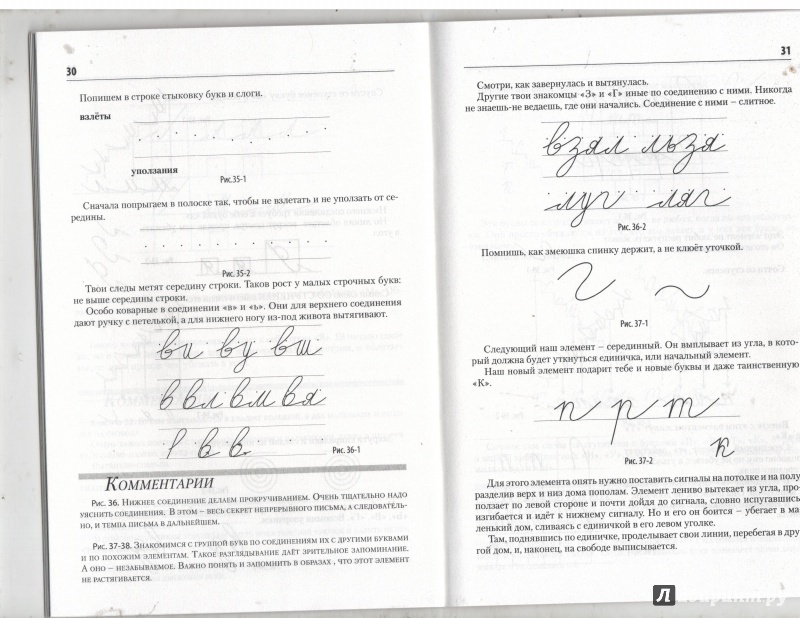 30
Попишем в строке стыковку букв и слоги.
взлёты
уползания
Рис.35-1
Сначала попрыгаем в полоске так, чтобы не взлетать и не уползать от се-
редины.
Рис. 35-2
Твои следы метят середину строки. Таков рост у малых строчных букв:
не выше середины строки.
Особо коварные в соединении «в» и «ь». Они для верхнего соединения
дают ручку с петелькой, а для нижнего ногу из-под живота вытягивают.
ви ву вш
в вл вм вя
в в
Рис. 36-1
Комментарии
Рис. 36. Нижнее соединение делаем прокручиванием. Очень тщательно надо
уяснить соединения. В этом – весь секрет непрерывного письма, а следователь-
но, и темпа письма в дальнейшем.
Рис. 37-38. Знакомимся с группой букв по соединениям их с другими буквами
и по похожим элементам. Такое разглядывание даёт зрительное запоминание.
А оно – незабываемое. Важно понять и запомнить в образах , что этот элемент
не растягивается.
31
Смотри, как завернулась и вытянулась.
Другие твои знакомцы «З» и «Г» иные по соединению с ними. Никогда
не знаешь-не ведаешь, где они начались. Соединение с ними – слитное.
взял льзя
луг ляг
Рис. 36-2
Помнишь, как змеюшка спинку держит, а не клюёт уточкой.
Рис. 37-1
Следующий наш элемент – серединный. Он выплывает из угла, в кото-
рый должна будет уткнуться единичка, или начальный элемент.
Наш новый элемент подарит тебе и новые буквы и даже таинственную
«К».
п р т
к
Рис. 37-2
Для этого элемента опять нужно поставить сигналы на потолке и на полу
разделив верх и низ дома пополам. Элемент лениво вытекает из угла, про-
ползает по левой стороне и почти дойдя до сигнала, словно испугавшись
изгибается и идёт к нижнему сигналу. Но и его он боится – убегает в ма-
ленький дом, сливаясь с единичкой в его левом уголке.
Там, поднявшись по единичке, проделывает свои линии, перебегая в дру
гой дом, и, наконец, на свободе выписывается.